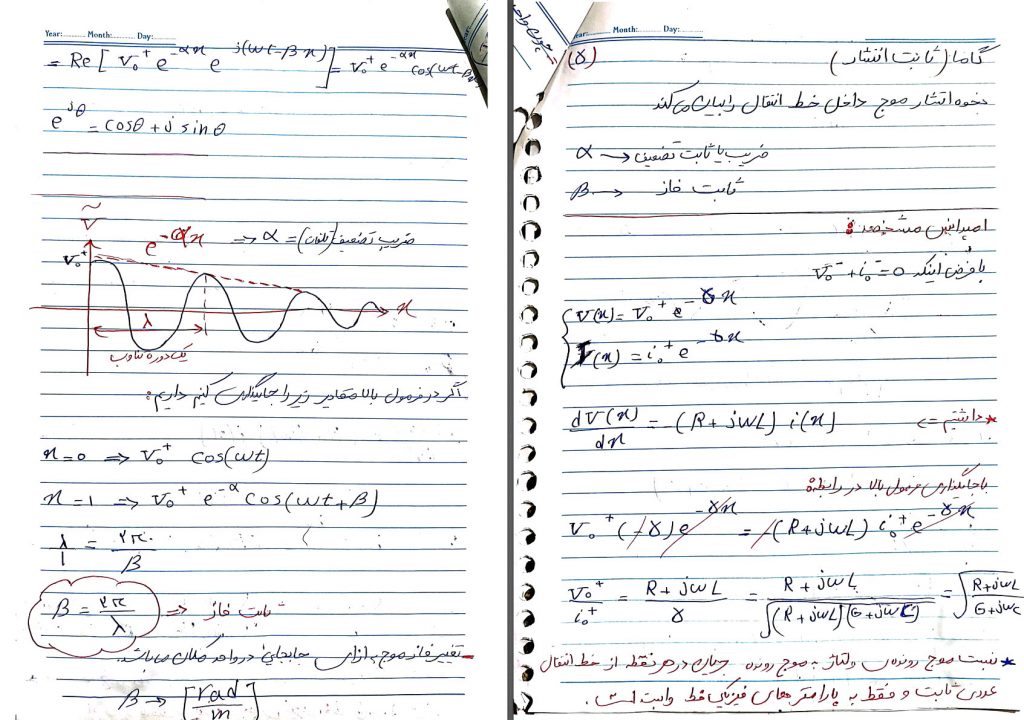 Year: Month: Day:
= Re [ V₀⁺ e^-αx e^j(ωt-βx) ] = V₀⁺ e^-αx cos(ωt-βx
e^jθ = cosθ + j sinθ
Ṽ
e^-αx ⇒ α = (تلفات) ضریب تضعیف
V₀⁺
λ
x
یک دوره تناوب
اگر در فرمول بالا مقادیر زیر را جایگذاری کنیم داریم:
x=0 ⇒ V₀⁺ cos(ωt)
x=1 ⇒ V₀⁺ e^-α cos(ωt+β)
λ/1 = ۲π/β
β = ۲π/λ ⇒ ثابت فاز
تغییر فاز موج به ازای جابجایی در واحد مکان می باشد.
β → [rad/m]
ear: Month: Day:
گاما (ثابت انتشار) (γ)
نحوه انتشار موج داخل خط انتقال را بیان می کند
α → ضریب یا ثابت تضعیف
β → ثابت فاز
امپدانس مشخصه:
با فرض اینکه V₀⁻ + i₀⁻ = 0
V(x) = V₀⁺ e^-γx
I(x) = i₀⁺ e^-γx
* داشتیم ⇒ dV(x)/dx = -(R+jωL) i(x)
با جایگذاری فرمول بالا در رابطه:
V₀⁺ (-γ) e^-γx = -(R+jωL) i₀⁺ e^-γx
V₀⁺/i₀⁺ = R+jωL/γ = R+jωL/√(R+jωL)(G+jωC) = √R+jωL/G+jωC
* نسبت موج رونده ی ولتاژ به موج رونده جریان در هر نقطه از خط انتقال
عددی ثابت و فقط به پارامترهای فیزیکی خط وابسته است.